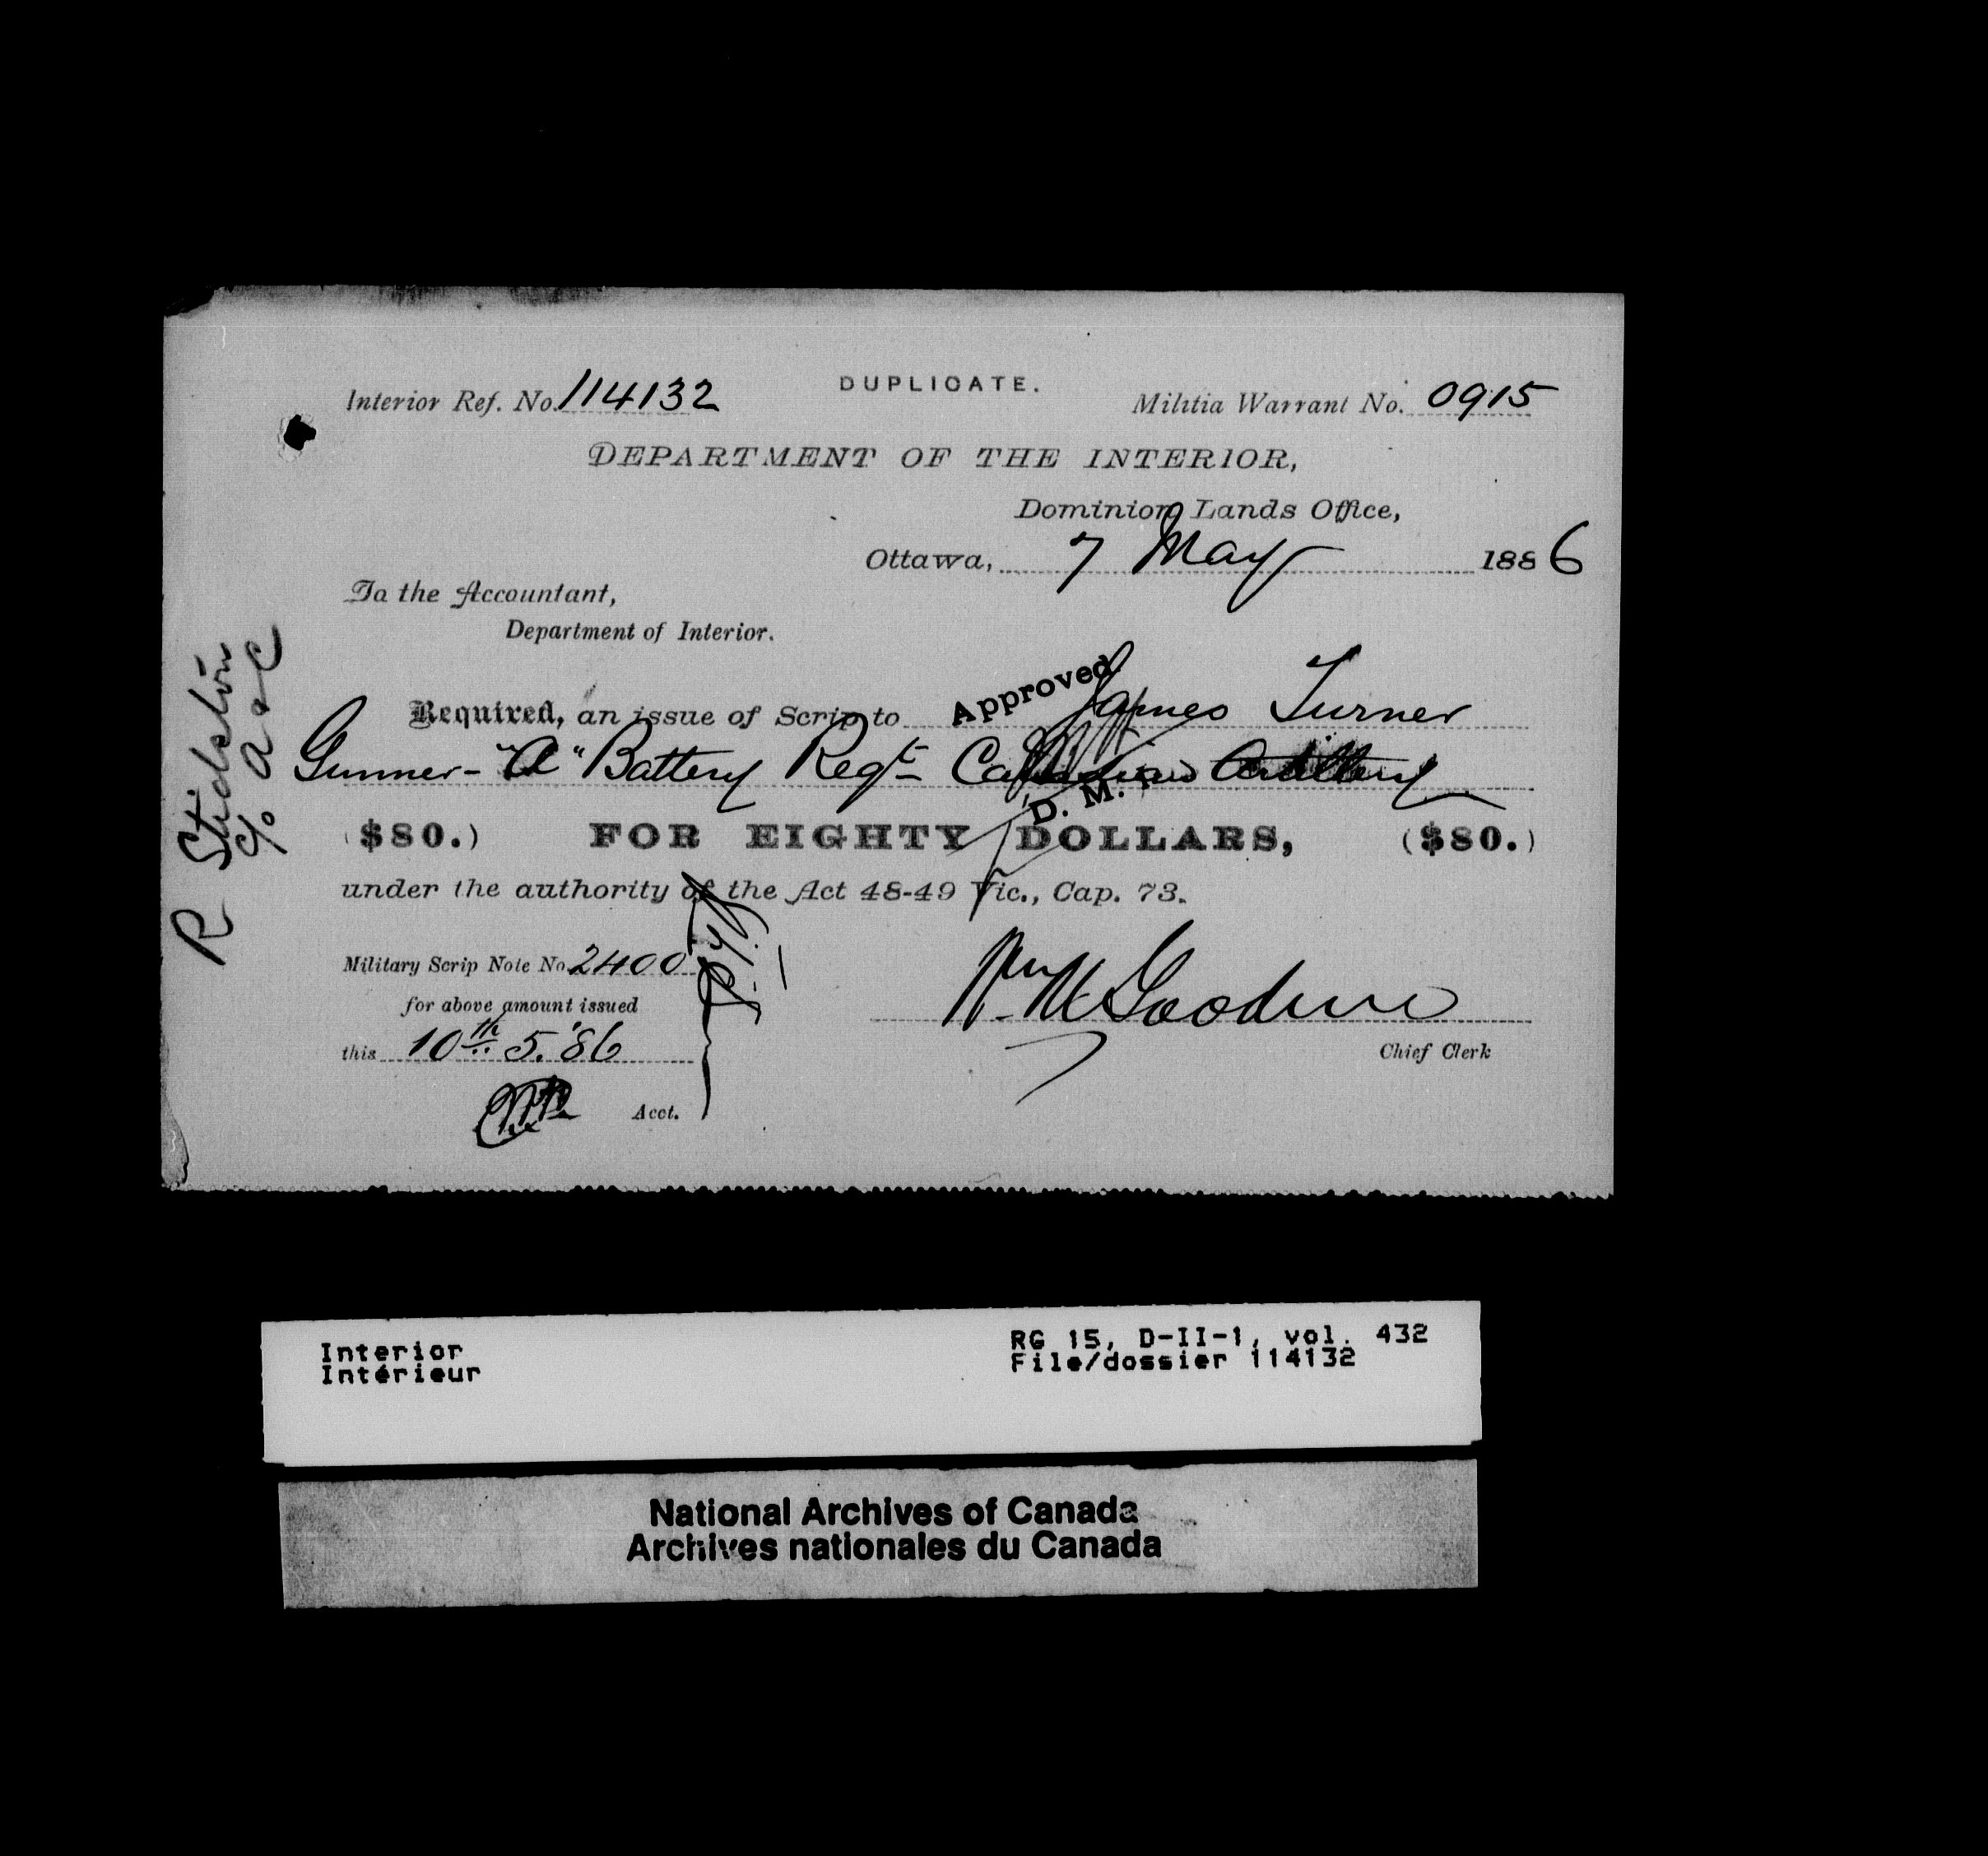 DUPLICATE.
Interior Ref. No. 114132
Militia Warrant No. 0915
DEPARTMENT OF THE INTERIOR,
Dominion Lands Office,
Ottawa, 7 May 1886
To the Accountant,
Department of Interior.
Approved
Required, an issue of Scrip to James Turner
Gunner - "A" Battery Regt Canadian Artillery
D. M.
($80.) FOR EIGHTY DOLLARS, ($80.)
under the authority of the Act 48-49 Vic., Cap. 73.
Military Scrip Note No. 2400
for above amount issued
this 10th 5. '86
Acct.
Chief Clerk
R
c/o
Interior
Intérieur
RG 15, D-II-1, vol. 432
File/dossier 114132
National Archives of Canada
Archives nationales du Canada